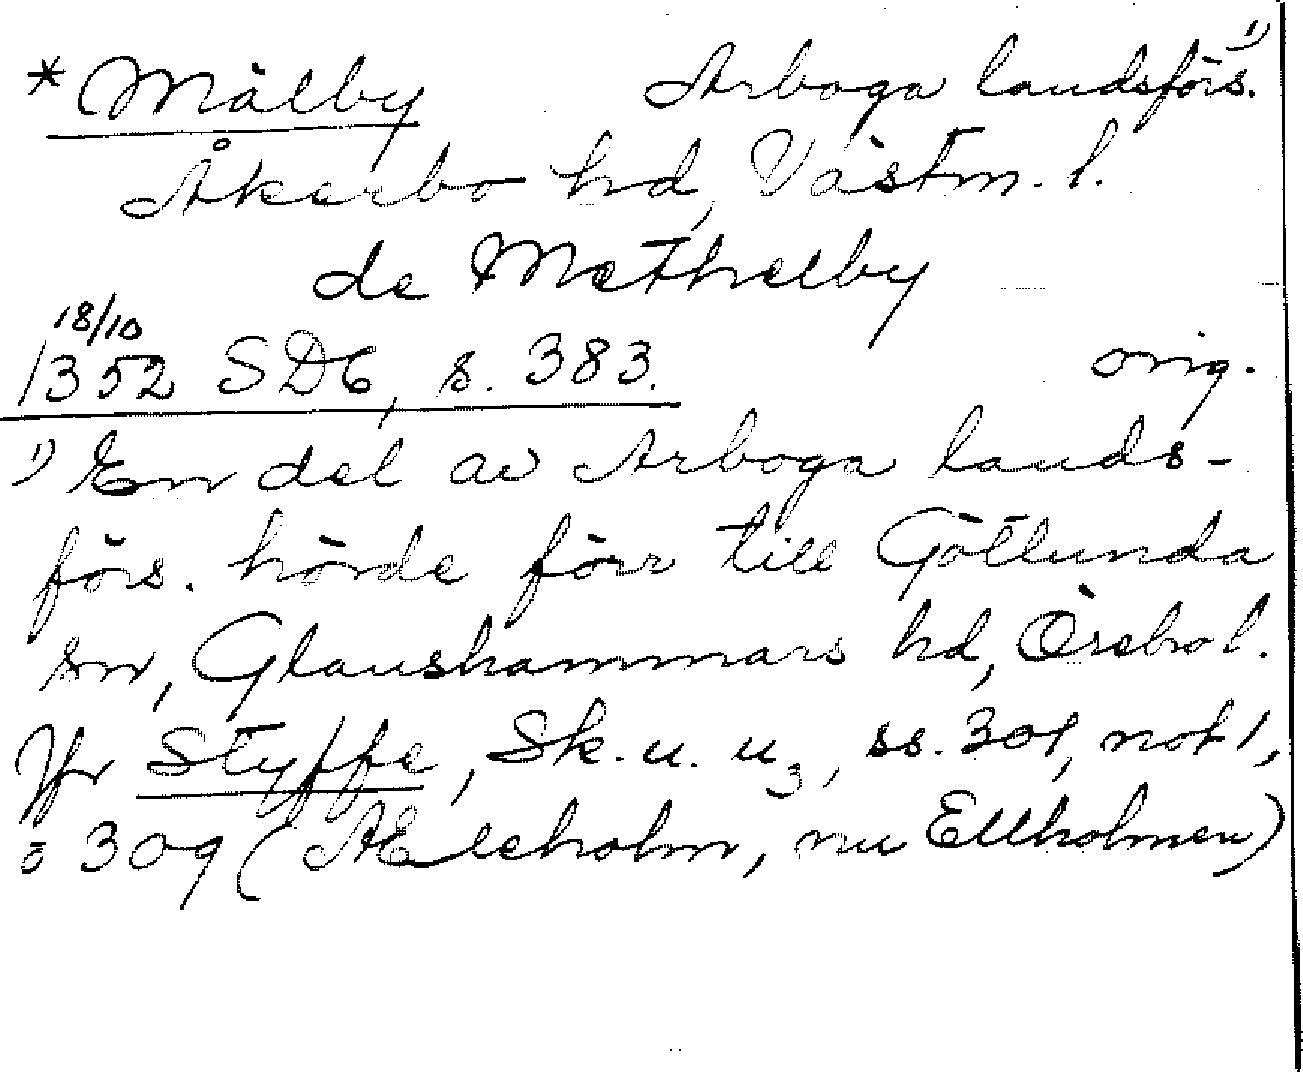 * Mälby Arboga landsförs. 1)
Åkerbo hd, Västm. l.
de Methelby
18/10
1352 SD 6, s. 383. orig.
1) En del av Arboga lands-
förs. hörde förr till Götlunda
sn, Glanshammars hd, Örebro l.
Jfr Styffe, Sk. u. u3, ss. 301, not 1,
o 309 (Ælleholm, nu Ellholmen)